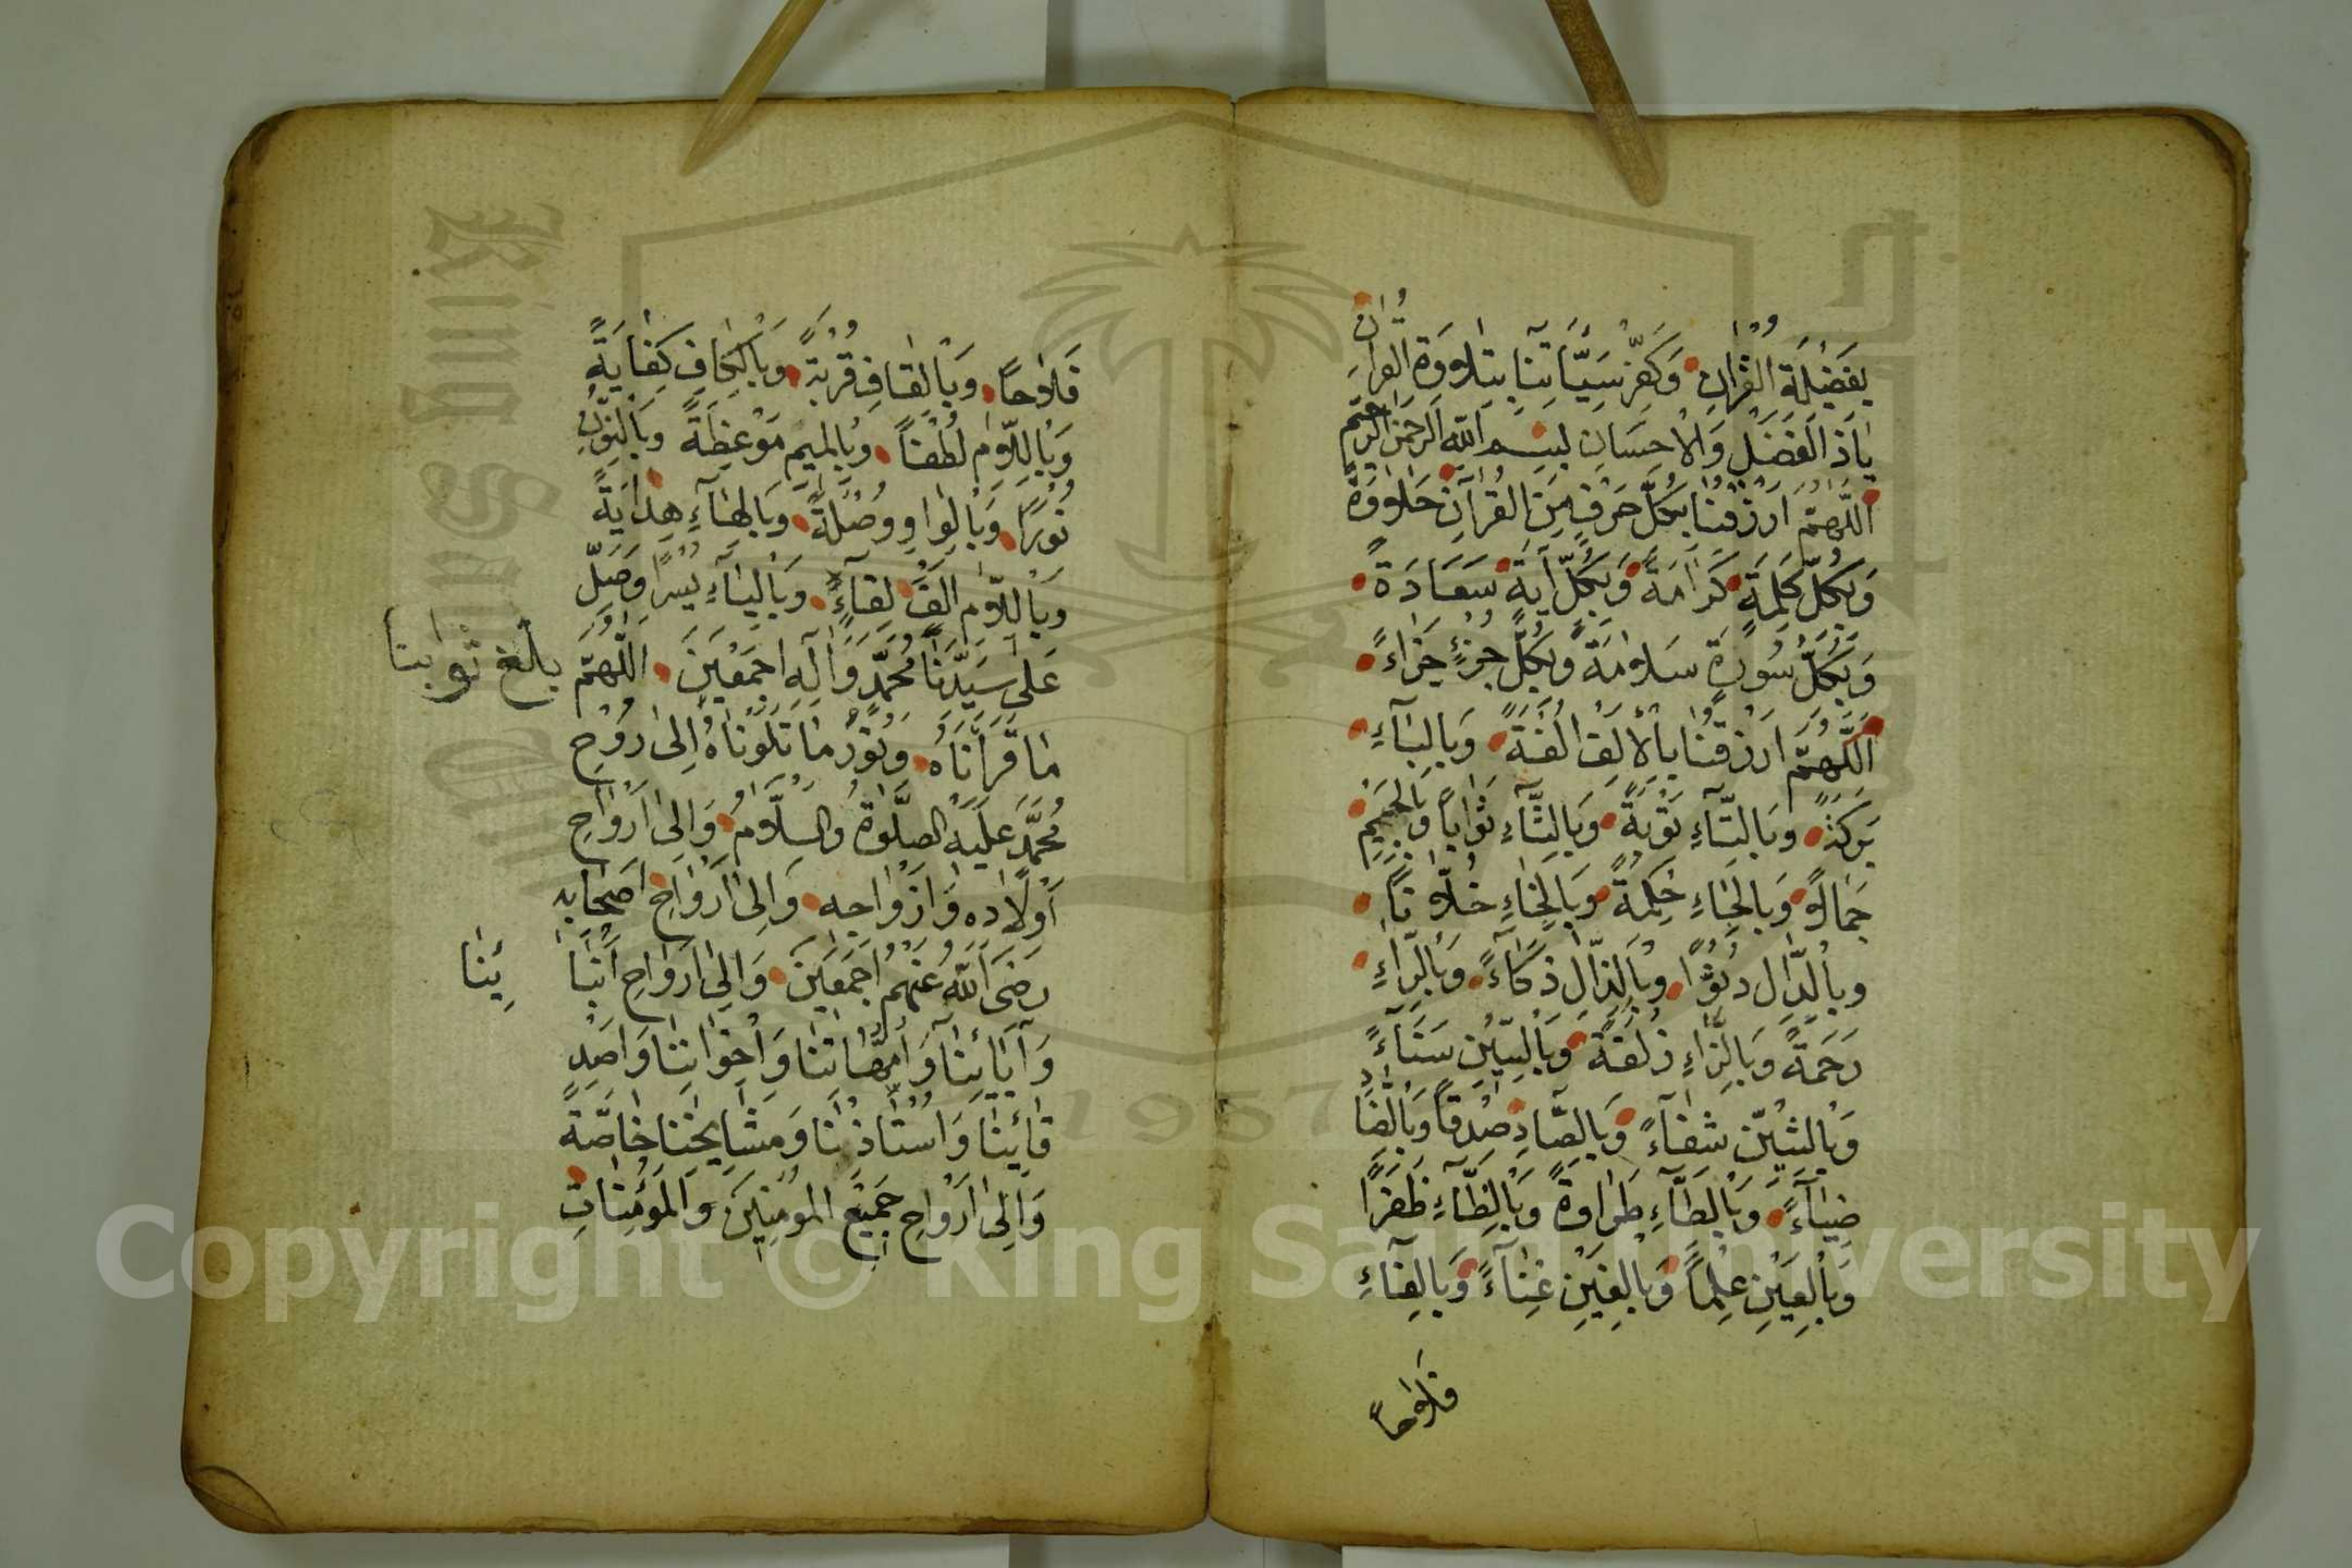 بِفَضِيلَةِ الْقُرْاٰنِ وَكَفِّرْ سَيِّئَاتِنَا بِتِلَاوَةِ الْقُرْاٰنِ
يَاذَ الْفَضْلِ وَالْاِحْسَانِ بِسْمِ اللّٰهِ الرَّحْمٰنِ الرَّحِيمِ
اَللّٰهُمَّ ارْزُقْنَا بِكُلِّ حَرْفٍ مِنَ الْقُرْآنِ حَلَاوَةً
وَبِكُلِّ كَلِمَةٍ كَرَامَةً وَبِكُلِّ اٰيَةٍ سَعَادَةً
وَبِكُلِّ سُورَةٍ سَلَامَةً وَبِكُلِّ جُزْءٍ جَزَاءً
اَللّٰهُمَّ ارْزُقْنَا بِالْاَلِفِ اُلْفَةً وَبِالْبَاءِ
بَرَكَةً وَبِالتَّاءِ تَوْبَةً وَبِالثَّاءِ ثَوَابًا وَبِالْجِيمِ
جَمَالًا وَبِالْحَاءِ حِكْمَةً وَبِالْخَاءِ خُلَّانًا
وَبِالدَّالِ دُنُوًّا وَبِالذَّالِ ذَكَاءً وَبِالرَّاءِ
رَحْمَةً وَبِالزَّاءِ زُلْفَةً وَبِالسِّينِ سَنَاءً
وَبِالشِّينِ شِفَاءً وَبِالصَّادِ صِدْقًا وَبِالضَّادِ
ضِيَاءً وَبِالطَّاءِ طَرَاوَةً وَبِالظَّاءِ ظَفَرًا
وَبِالْعَيْنِ عِلْمًا وَبِالْغَيْنِ غِنَاءً وَبِالْفَاءِ
فَلَاحًا
فَلَاحًا وَبِالْقَافِ قُرْبَةً وَبِالْكَافِ كِفَايَةً
وَبِاللَّامِ لُطْفًا وَبِالْمِيمِ مَوْعِظَةً وَبِالنُّونِ
نُورًا وَبِالْوَاوِ وُصْلَةً وَبِالْهَاءِ هِدَايَةً
وَبِاللَّامِ اَلِفْ لِقَاءً وَبِالْيَاءِ يُسْرًا وَصَلِّ
عَلٰى سَيِّدِنَا مُحَمَّدٍ وَآلِهِ اَجْمَعِينَ اَللّٰهُمَّ بَلِّغْ ثَوَابَنَا
مَا قَرَأْنَاهُ وَنُورَ مَا تَلَوْنَاهُ اِلٰى رُوحِ
مُحَمَّدٍ عَلَيْهِ الصَّلٰوةُ وَالسَّلَامُ وَاِلٰى اَرْوَاحِ
اَوْلَادِهِ وَاَزْوَاجِهِ وَاِلٰى اَرْوَاحِ اَصْحَابِهِ
رَضِىَ اللّٰهُ عَنْهُمْ اَجْمَعِينَ وَاِلٰى اَرْوَاحِ اٰبَا ئِنَا
وَاٰبَائِنَا وَاُمَّهَاتِنَا وَاِخْوَانِنَا وَاَصْدِ
قَائِنَا وَاُسْتَاذِنَا وَمَشَايِخِنَا خَاصَّةً
وَاِلٰى اَرْوَاحِ جَمِيعِ الْمُؤْمِنِينَ وَالْمُؤْمِنَاتِ
Copyright © King Saud University
King Saud
1957